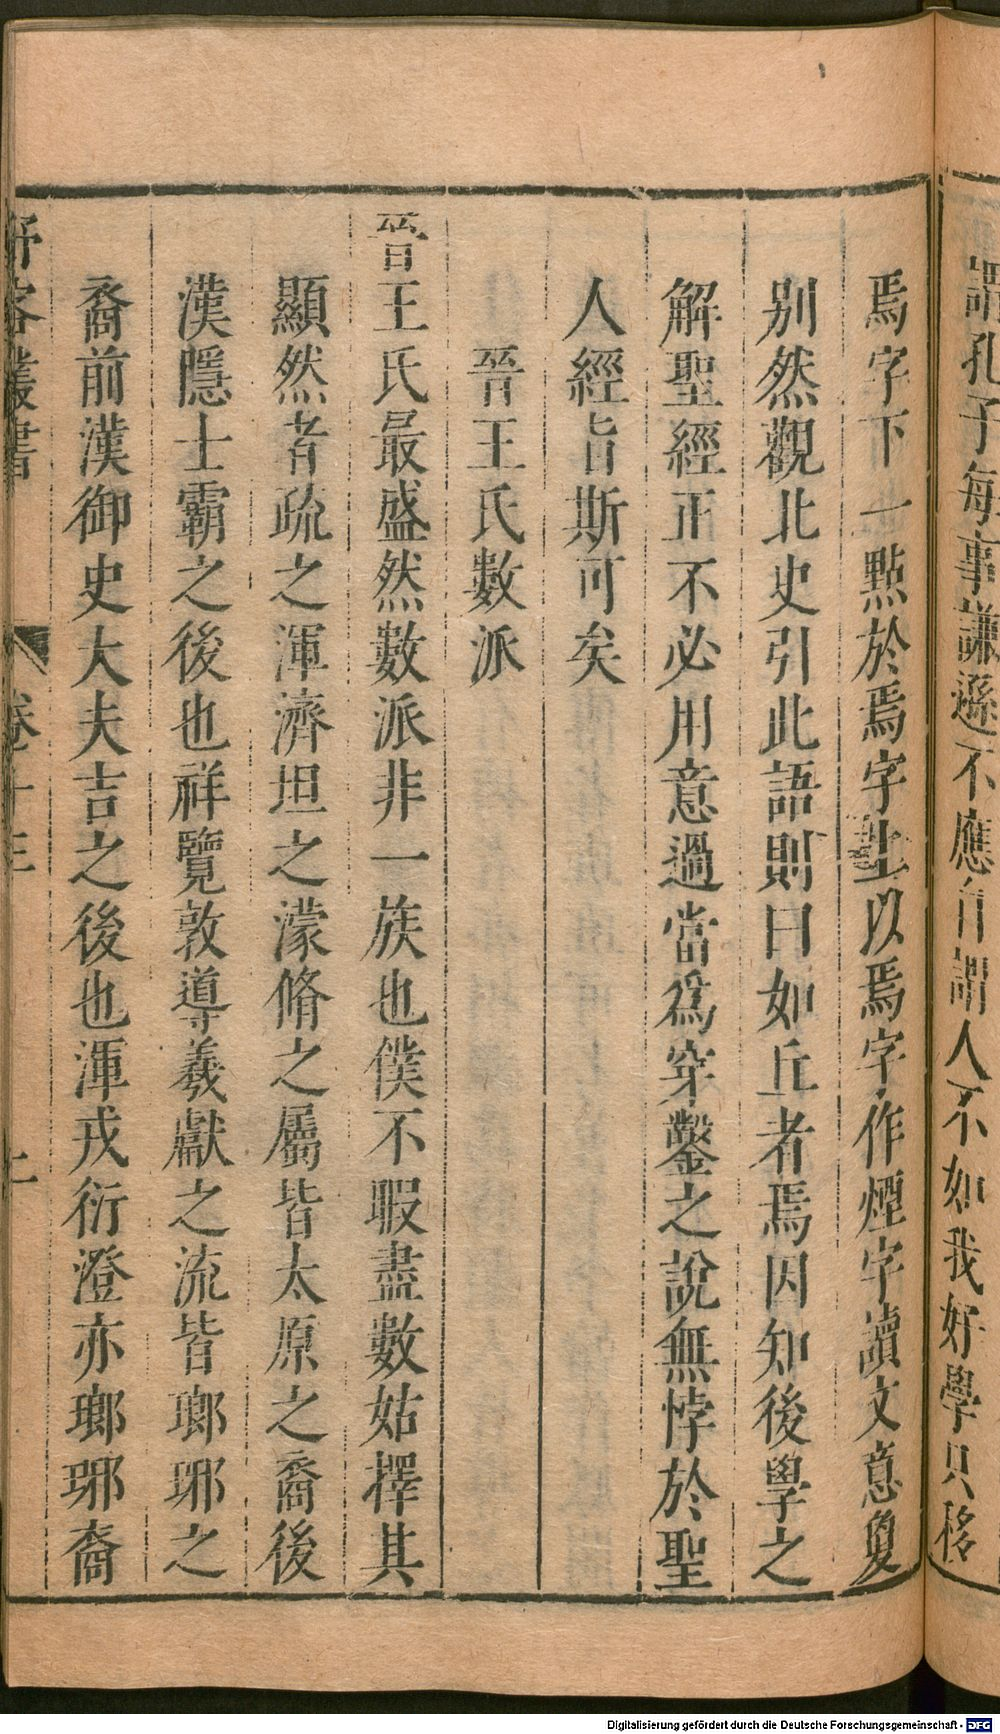 謂孔子每事謙遜不應自謂人不如我好學只移
焉字下一點於焉字上以焉字作煙字讀文意夐
别然觀北史引此語則曰如丘者焉因知後學之
解聖經正不必用意過當爲穿鑿之說無悖於聖
人經旨斯可矣
晉王氏數派
晉王氏最盛然數派非一族也僕不暇盡數姑擇其
顯然者疏之渾濟坦之濛脩之屬皆太原之裔後
漢隱士霸之後也祥覽敦導羲獻之流皆瑯琊之
裔前漢御史大夫吉之後也渾戎衍澄亦瑯琊裔
野客叢書 卷十三
Digitalisierung gefördert durch die Deutsche Forschungsgemeinschaft - DFG